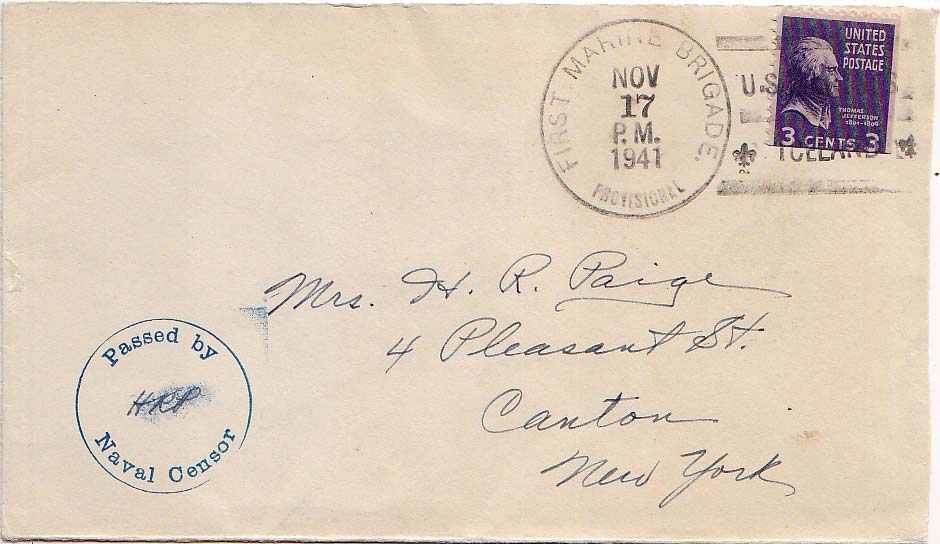 FIRST MARINE BRIGADE.
NOV
17
P.M.
1941
PROVISIONAL
U.S.
ICELAND
UNITED
STATES
POSTAGE
THOMAS
JEFFERSON
1801-1809
3 CENTS 3
Mrs. H. R. Paige
4 Pleasant St.
Canton
New York
Passed by
HRP
Naval Censor